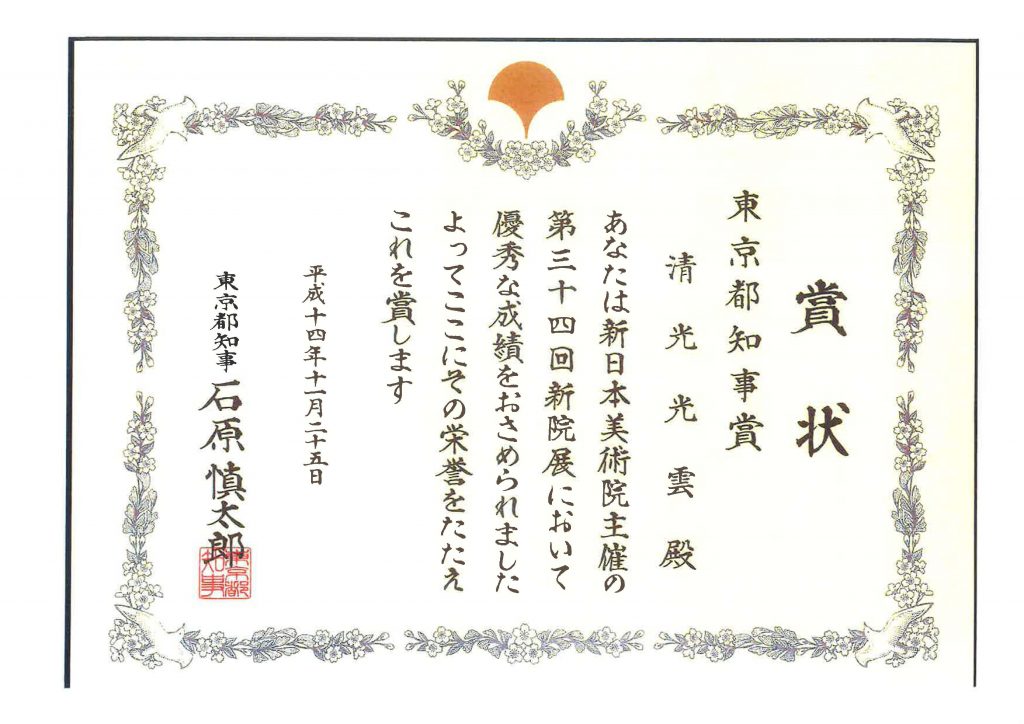 賞状
東京都知事賞
清光光雲殿
あなたは新日本美術院主催の
第三十四回新院展において
優秀な成績をおさめられました
よってここにその栄誉をたたえ
これを賞します
平成十四年十一月二十五日
東京都知事 石原慎太郎
東京都
知事